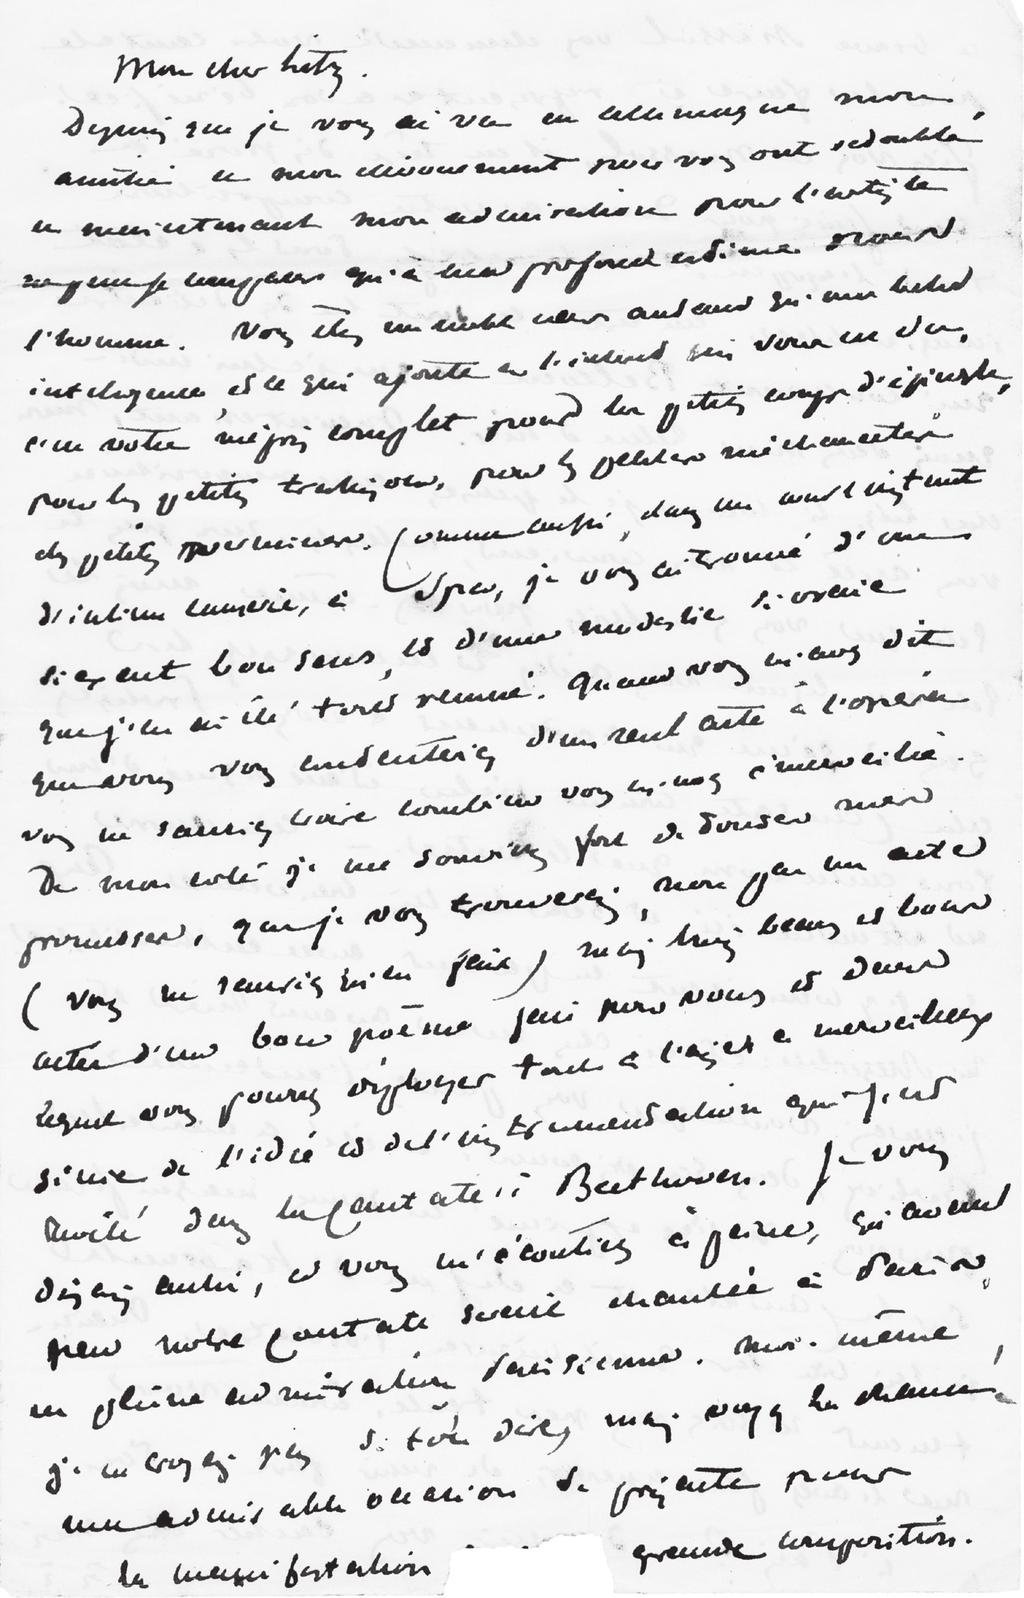 Mon cher Litz.
Depuis que je vous ai vu en allemagne mon
amitié et mon dévouement pour vous ont redoublé
et maintenant mon admiration pour l'artiste
ne peut se comparer qu'à mon profond estime pour
l'homme. Vous êtes un noble cœur autant qu'une belle
intelligence, et ce qui ajoute à l'intérêt qui vous est du,
c'est votre mépris complet pour les petits coups d'épingle,
pour les petites trahisons, pour les petites méchancetés
des petites
d'intime causerie, à Spa, je vous ai trouvé d'un
si exquis bon sens, et d'une modestie si vraie
que j'en ai été tout remué. Quand vous m'avez dit
que vous vous contenteriez d'un seul acte à l'opéra
vous ne sauriez croire combien vous m'avez émerveillé.
De mon coté je me souviens fort de toutes mes
promesses, que je vous trouverais, non pas un acte
(vous ne sauriez qu'en faire) mais trois beaux et bons
actes d'un bon poëme fait pour vous et dans
lequel vous pourrez déployer tout à l'aise ce merveilleux
génie de l'idée et de l'instrumentation qui s'est
révélé dans la Cantate à Beethoven. Je vous
disais aussi, et vous m'écoutiez à peine, qu'avant
peu notre Cantate serait chantée à Paris,
en pleine admiration Parisienne. moi-même,
je ne croyais pas si tôt dire, mais voyez la chance,
une admirable occasion se présente pour
la manifestation grande composition.